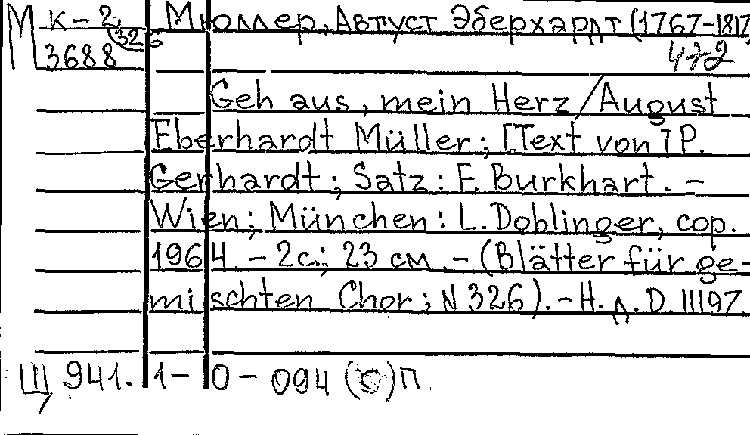 М к-2 326 Мюллер, Август Эберхардт (1767-1817
3688 472
Geh aus, mein Herz / August
Eberhardt Müller; [Text von] P.
Gerhardt; Satz: F. Burkhart. –
Wien; München: L. Doblinger, cop.
1964. – 2 с.; 23 см. – (Blätter für ge-
mischten Chor; N 326). – Н. д. D. 11197.
Щ 941. 1-0-094 (С)П.